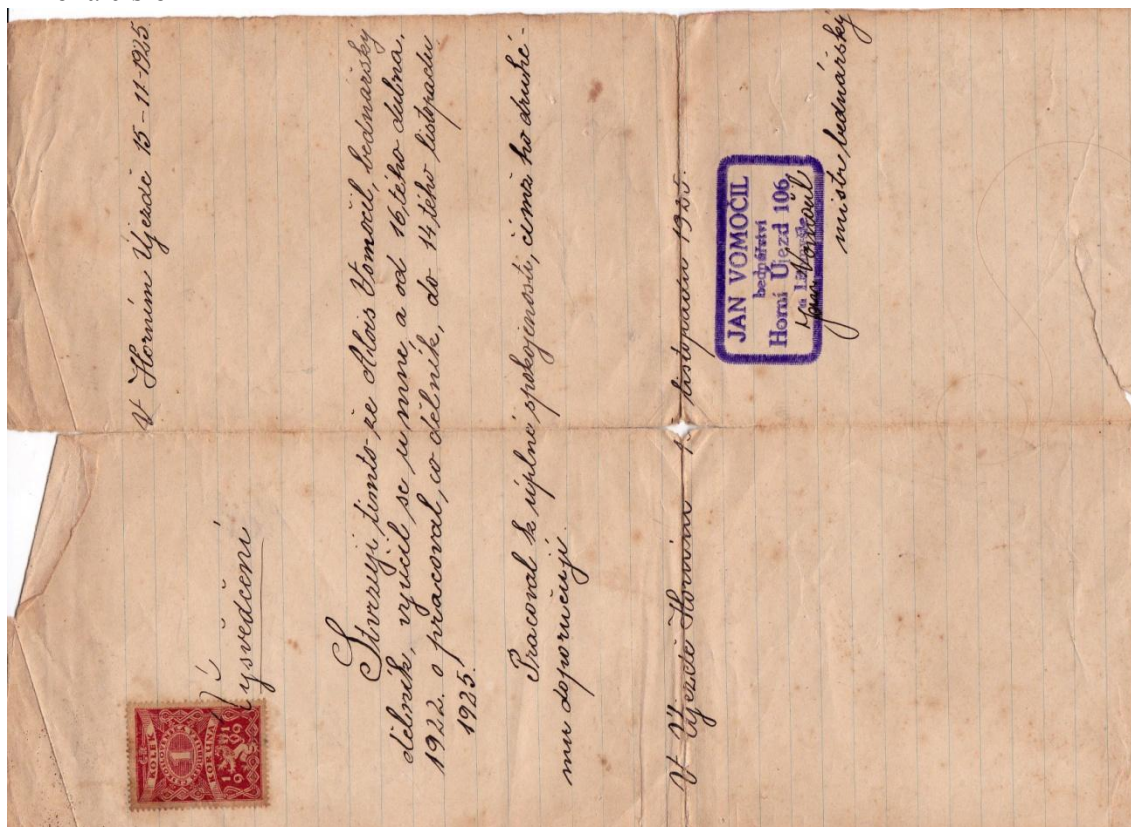 V Horním Újezdě 15-11-1925
Vysvědčení
KOLEK
1
KORUNA
19 19
Stvrzuji tímto ze Alois Vomočil, bednářský
dělník, vyučil se u mne a od 16, tého dubna,
1922. o pracoval, co dělník, do 14, tého listopadu
1925.
Pracoval k úplné spokojenosti, čímž ho druhé-
mu doporučuji
V Újezdě Horním listopadu 1925.
JAN VOMOČIL
bednářství
Horní Újezd 106
Jan Vomočil
mistr bednářský